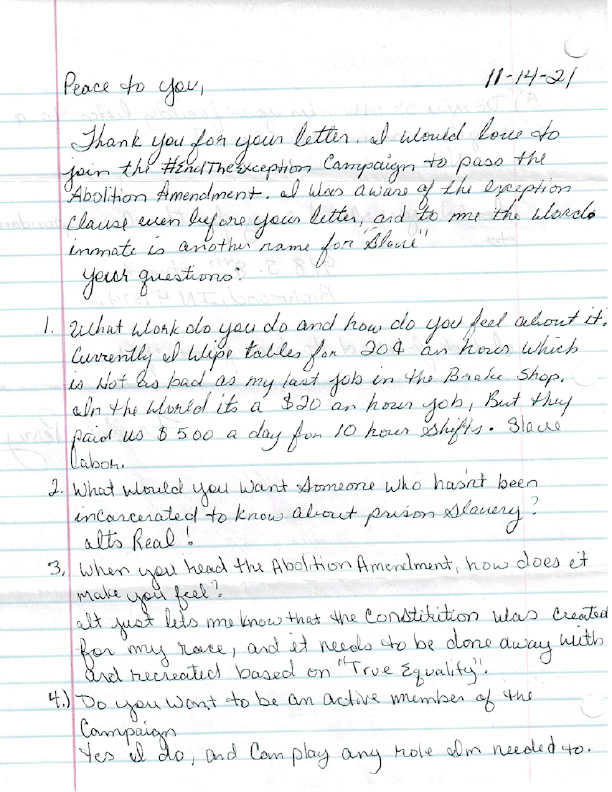 11-14-21
Peace to you,
Thank you for your letter. I would love to
join the #EndTheException Campaign to pass the
Abolition Amendment. I was aware of the exception
Clause even before your letter, and to me the words
inmate is another name for "Slave"
your questions:
1. What work do you do and how do you feel about it.
Currently I wipe tables for 20¢ an hour which
is Not as bad as my last job in the Brake Shop.
In the World its a $20 an hour job, But they
paid us $5.00 a day for 10 hour shifts. Slave
labor.
2. What would you want Someone who hasn't been
incarcerated to know about prison slavery?
Its Real!
3. When you read the Abolition Amendment, how does it
make you feel?
It just lets me know that the Constitution was created
for my race, and it needs to be done away with
and recreated based on "True Equality".
4.) Do you want to be an active member of the
Campaign
Yes I do, and Can play any role Im needed to.